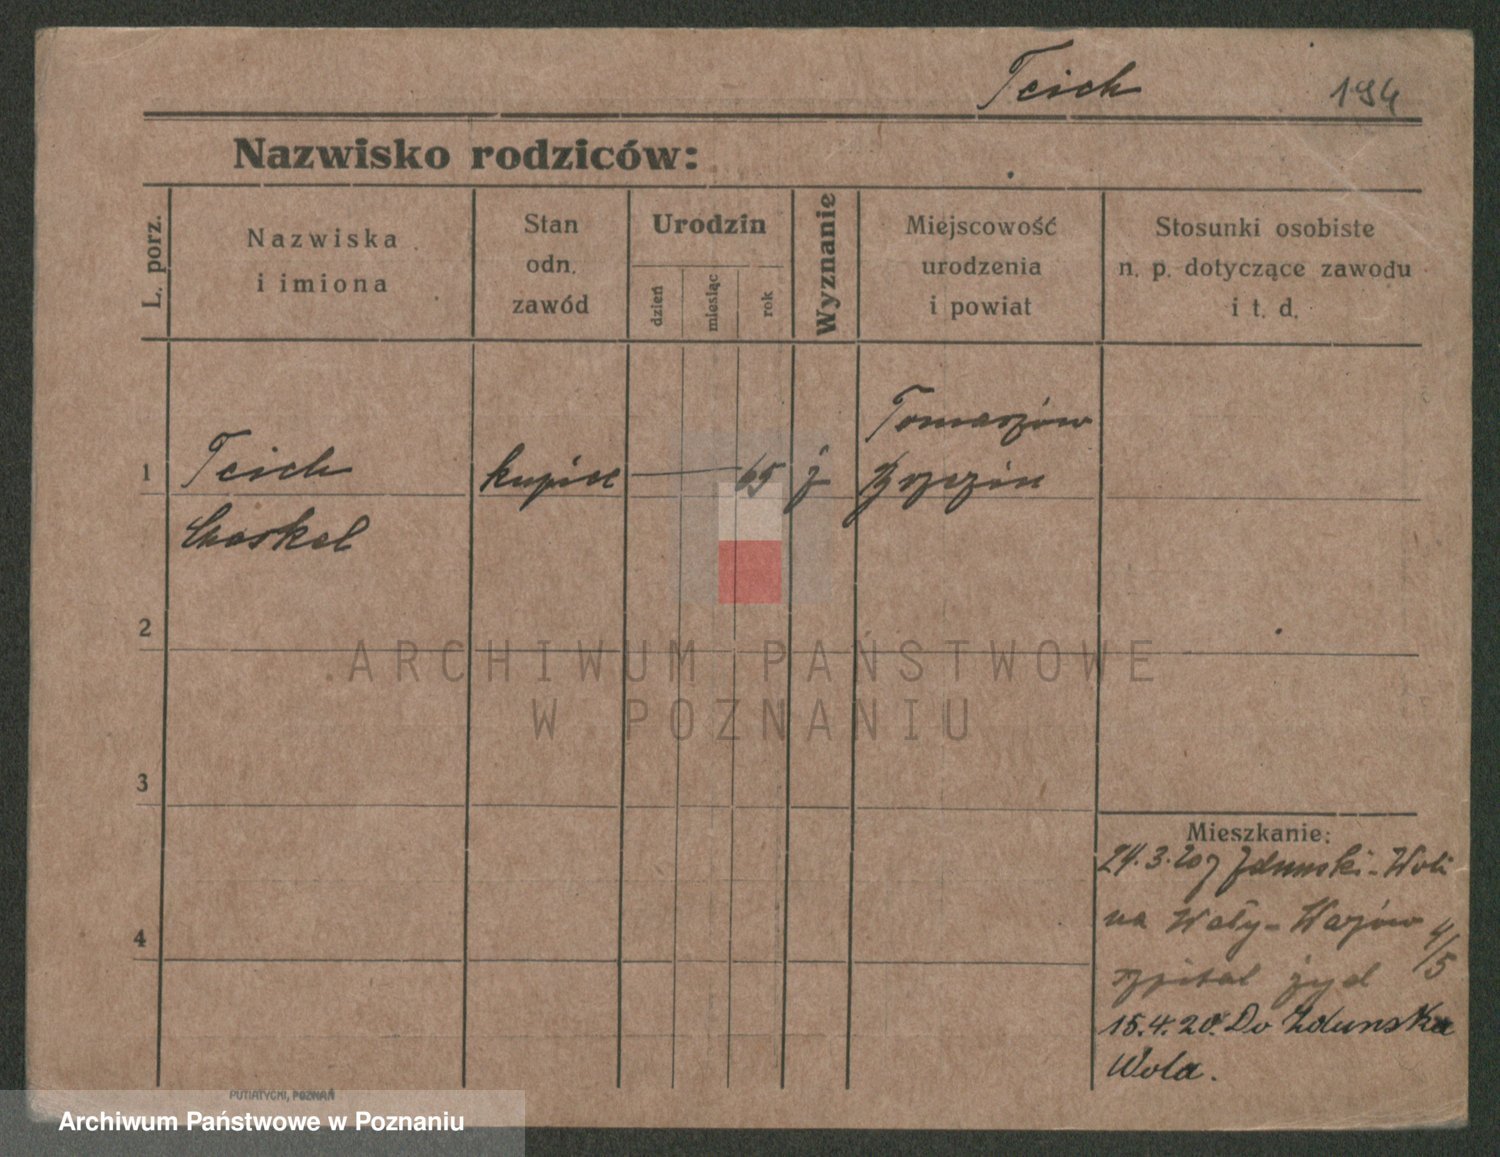 Teich 194
Nazwisko rodziców:
L. porz.
Nazwiska
i imiona
Stan
odn.
zawód
Urodzin
dzień
miesiąc
rok
Wyznanie
Miejscowość
urodzenia
i powiat
Stosunki osobiste
n. p. dotyczące zawodu
i t. d.
Tomaszów
1 Teich kupiec 65 ż Brzezin
Chaskel
2
ARCHIWUM PAŃSTWOWE
W POZNANIU
3
Mieszkanie:
24.3.20 z Zduński-Woli
4
na Wały-Wazów 4/5
szpital żyd
15.4.20. Do Zduńska
Wola.
PUTIATYCKI, POZNAŃ
Archiwum Państwowe w Poznaniu